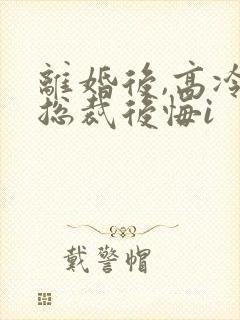 離婚後,高冷
總裁後悔i
戴警帽